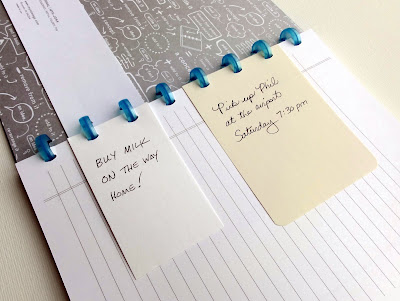 BUY MILK
ON THE WAY
HOME!
Pick up Phil
at the airport
Saturday 7:30 pm